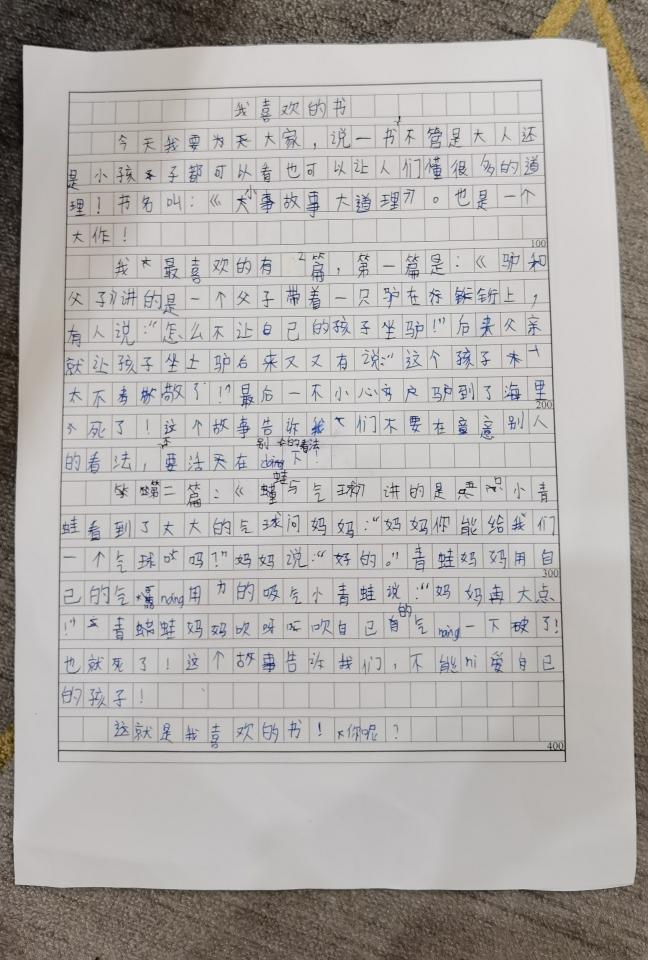 我喜欢的书
今天我要为大家,说一书不管是大人还
是小孩子都可以看也可以让人们懂很多的道
理!书名叫:《小故事大道理》。也是一个
大作!
100
我最喜欢的有2篇,第一篇是:《驴和
父子》讲的是一个父子带着一只驴在街上,
有人说:“怎么不让自己的孩子坐驴!”后来父亲
就让孩子坐上驴后来又又有说:“这个孩子
太不孝敬了!”最后一不小心驴到了海里
200
死了!这个故事告诉们不要在意别人
的看法,不要活在别的看法dǐng下!
第二篇:《蛙与气球》讲的是一只小青
蛙看到了大大的气球问妈妈:“妈妈你能给我们
一个气球吗?”妈妈说:“好的。”青蛙妈妈用自
300
己的气náng用力的吸气小青蛙说:“妈妈再大点
!”青蛙妈妈吹呀吹自己的气náng一下破了!
也就死了!这个故事告诉我们,不能nì爱自己
的孩子!
这就是我喜欢的书!你呢?
400